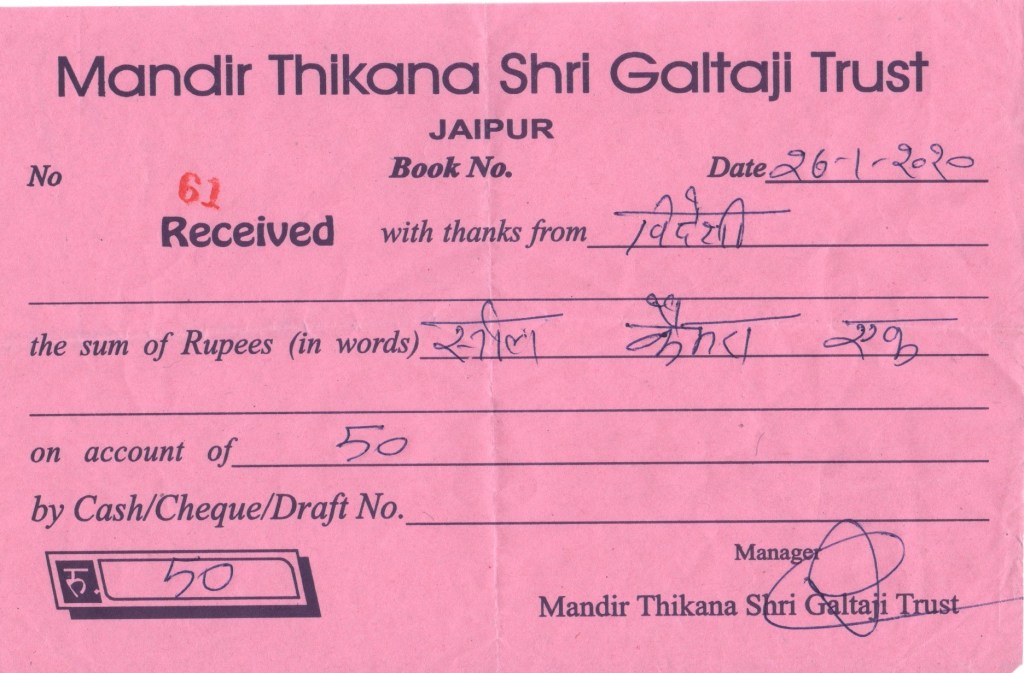 Mandir Thikana Shri Galtaji Trust
JAIPUR
No 61 Book No. Date 26-1-2020
Received with thanks from विदेशी
the sum of Rupees (in words) स्टील कैमरा एक
on account of 50
by Cash/Cheque/Draft No.
रु. 50
Manager
Mandir Thikana Shri Galtaji Trust